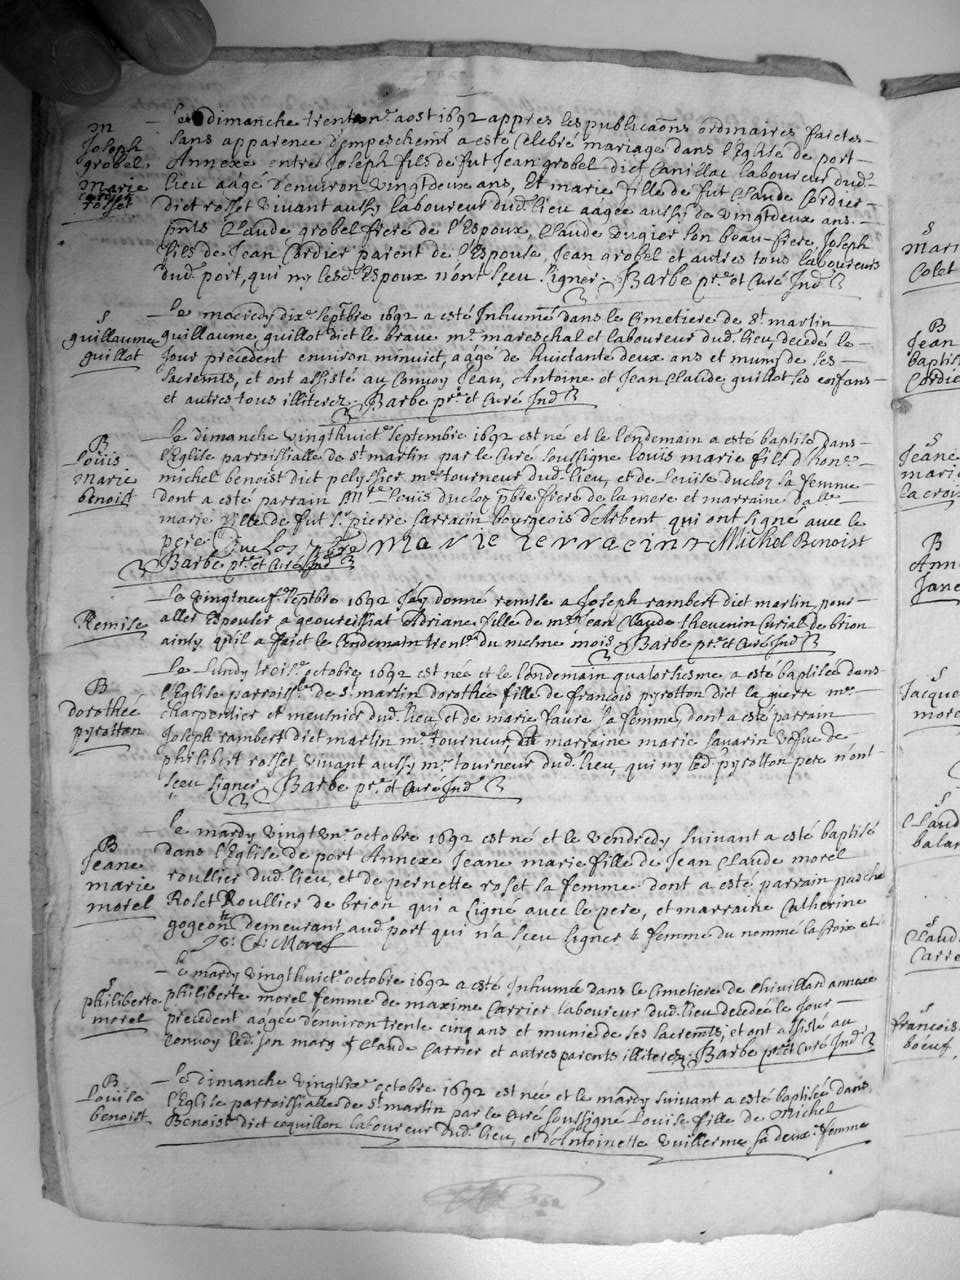 M
Joseph
grobel
Marie
rosset
Le dimanche trent'un.e aost 1692 appres les publicaõns ordinaires faictes
sans apparence d'empeschemt a esté célébré mariage dans l'Eglise de port
Annexe entre Joseph fils de fut Jean grobel dict Canillac laboureur dud.
lieu aâgé d'environ vingtdeux ans, Et marie fille de fut Claude Cordier
dict rosset vivant aussy laboureur dud. lieu aâgée aussy de vingtdeux ans.
pnts Claude grobel frere de l'Espoux, Claude Dugier son beau-frere, Joseph
fils de Jean Cordier parent de l'Espouse, Jean grobel et autres tous laboureurs
dud. port, qui ny lesd. Espoux n'ont sçeu signer. Barbe ptre et Curé Ind.
S
guillaume
guillot
Le mecredy dix.e septbre 1692 a esté Inhumé dans le Cimetiere de St martin
guillaume guillot dict le brave me mareschal et laboureur dud. lieu, decedé le
Jour précédent environ minuict, aâgé de huictante deux ans et muny de ses
sacremts, et ont assisté au Convoy Jean, Antoine et Jean Claude guillot ses enfans
et autres tous illiterez. Barbe ptre et Curé Ind.
B
Louis
marie
benoist
Le dimanche vingthuict.e septembre 1692 est né et le lendemain a esté baptisé dans
l'Eglise parroissialle de st martin par le Curé soussigné Louis marie fils d'hon.
michel benoist dict pelyssier me tourneur dud. lieu, et de Louise ducloz sa femme
dont a esté parrain Mre Louis ducloz pbre frere de la mere et marraine dalle
marie fille de fut Sr pierre sarracin bourgeois d'Arbent qui ont signé avec le
pere. Duclos pbre Marie serracint Michel Benoist
Barbe ptre et Curé Ind.
Remise
Le vingtneuf.e septbre 1692 J'ay donné remise a Joseph rambert dict martin, pour
aller Espouser a geovreissiat Adriane fille de me Jean Claude thevenin Curial de brion
ainsy qu'il a faict le lendemain trent.e du mesme mois. Barbe ptre et Curé Ind.
B
dorothée
pyrotton
Le Lundy treis.e octobre 1692 est née et le lendemain quatorsiesme a esté baptisée dans
l'Eglise parroissle de St martin dorothée fille de françois pyrotton dict le guerre me
charpentier et meusnier dud. lieu, et de marie faure sa femme, dont a esté parrain
Joseph rambert dict martin me tourneur, et marraine marie savarin vefue de
philibert rosset vivant aussy me tourneur dud. lieu, qui ny led. pyrotton pere n'ont
sçeu signer. Barbe ptre et Curé Ind.
B
Jeane
marie
morel
Le mardy vingtun.e octobre 1692 est né et le vendredy suivant a esté baptisé
dans l'Eglise de port Annexe Jeane marie fille de Jean Claude morel
roullier dud. lieu, et de pernette roset sa femme dont a esté parrain
Roset Roullier de brion qui a signé avec le pere, et marraine Catherine
gogeon demeurant aud. port qui n'a sçeu signer femme du nommé la froix et
J. C. Morel
S
philiberte
morel
Le mardy vingthuict.e octobre 1692 a esté Inhumée dans le Cimetiere de Chivillan annexe
philiberte morel femme de maxime Carrier laboureur dud. lieu decedée le Jour
précédent aâgée d'environ trente cinq ans et munie de ses sacremts, et ont assisté au
Convoy led. son mary et Claude Carrier et autres parents illiterez. Barbe ptre et Curé Ind.
B
Louise
benoist
Le dimanche vingtsix.e octobre 1692 est née et le mardy suivant a esté baptisée dans
l'Eglise parroissialle de St martin par le Curé soussigné Louise fille de Michel
Benoist dict coquillon laboureur dud. lieu, et d'Antoinette vuillerme sa deux.e femme
S
Mari
Colet
B
Jean
baptis
Cordie
S
Jeane
marie
la croix
B
Ann
Jane
S
Jacque
more
S
Claud
balan
S
Claud
Carre
S
françois
boeuf